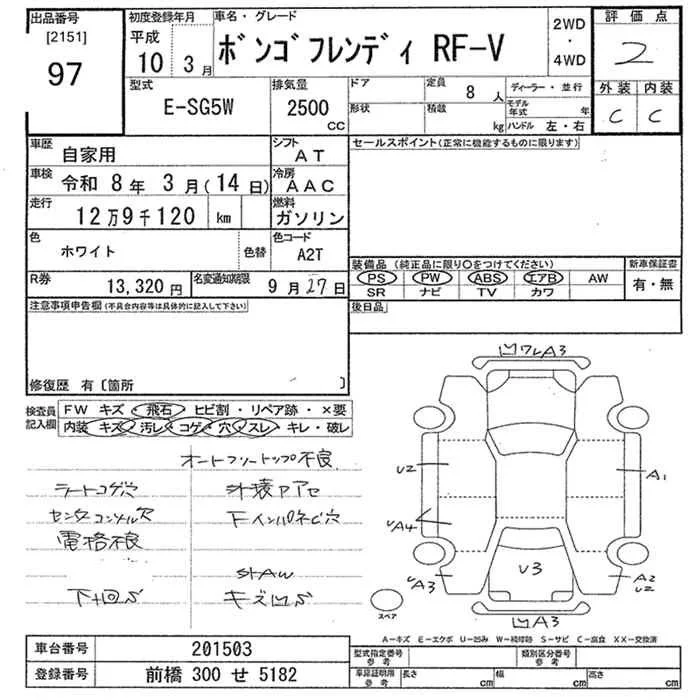 出品番号
[2151]
97
初度登録年月
平成
10 3月
車名・グレード
ボンゴフレンディ RF-V
2WD
・
4WD
評価点
2
外装 内装
C C
型式
E-SG5W
排気量
2500
CC
ドア
形状
定員
8人
積載
kg
ディーラー・並行
モデル年式 年
ハンドル 左・右
車歴
自家用
シフト
AT
車検
令和 8年 3月(14日)
冷房
AAC
走行
12万9千120 km
燃料
ガソリン
色
ホワイト
色替
色コード
A2T
R券
13,320円
名変通知期限
9月27日
セールスポイント(正常に機能するものに限ります)
装備品 (純正品に限り〇をつけてください)
PS PW ABS エアB AW
SR ナビ TV カワ
新車保証書
有・無
後日品
注意事項申告欄 (不具合内容等は具体的に記入して下さい)
修復歴 有〔箇所 〕
検査員
記入欄
FW キズ・飛石・ヒビ割・リペア跡・×要
内装 キズ・汚レ・コゲ・穴・スレ・キレ・破レ
オートフリートップ不良
シートコゲ穴
外装色アセ
センターコンソール穴
電格不良
キズ凹み
凹ワレA3
U2
A1
UA4
UA3
U3
A2
U2
凹A3
スペア
A-キズ E-エクボ U-凹み W-補修跡 S-サビ C-腐食 XX-交換済
車台番号 201503
登録番号 前橋 300 せ 5182
型式指定番号
参考
類別区分番号
参考
車庫証明用
参考
長さ cm
幅 cm
高さ cm